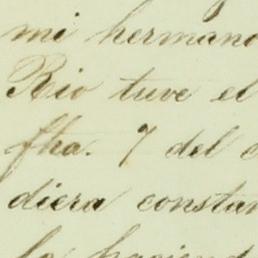 mi hermano
Rio tuve el
fha. 7 del
diera constan
la haciend